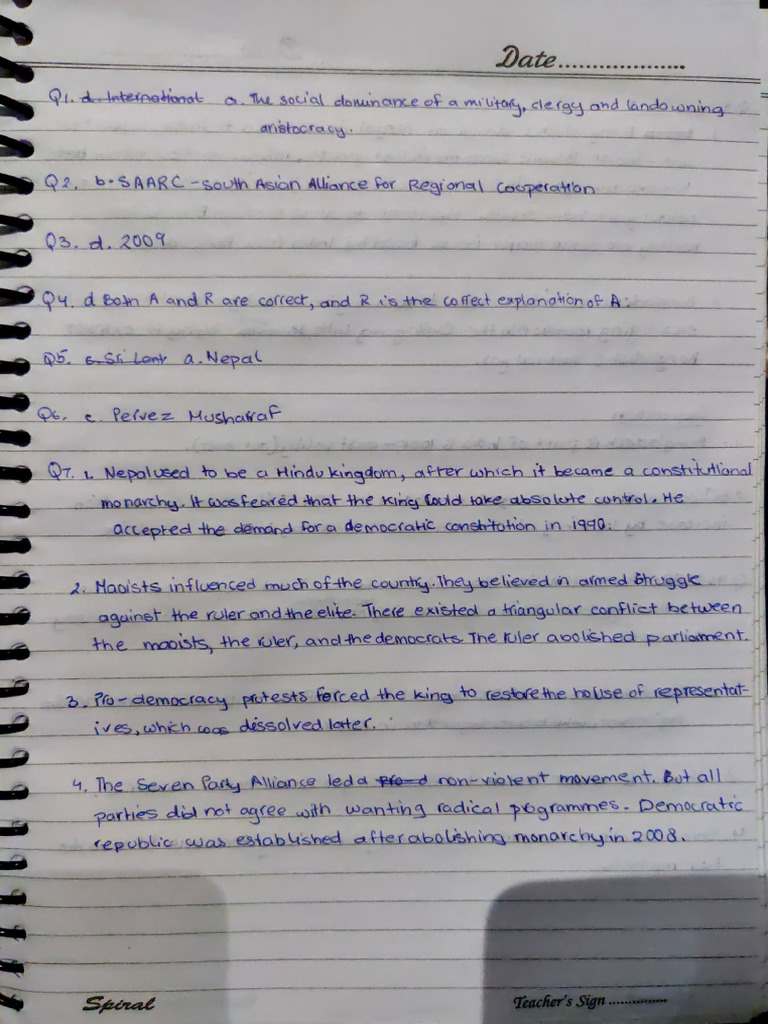 Date...................
Q1. d. International a. The social dominance of a military, clergy and landowning
aristocracy.
Q2. b. SAARC - South Asian Alliance for Regional Cooperation
Q3. d. 2009
Q4. d Both A and R are correct, and R is the correct explanation of A.
Q5. c. Sri Lank a. Nepal
Q6. c. Pervez Musharraf
Q7. 1. Nepal used to be a Hindu kingdom, after which it became a constitutional
monarchy. It was feared that the king could take absolute control. He
accepted the demand for a democratic constitution in 1990.
2. Maoists influenced much of the country. They believed in armed struggle
against the ruler and the elite. There existed a triangular conflict between
the maoists, the ruler, and the democrats. The ruler abolished parliament.
3. Pro-democracy protests forced the king to restore the house of representat-
ives, which was dissolved later.
4. The Seven Party Alliance led a pro-d non-violent movement. But all
parties did not agree with wanting radical programmes. Democratic
republic was established after abolishing monarchy in 2008.
Spiral
Teacher's Sign ...............